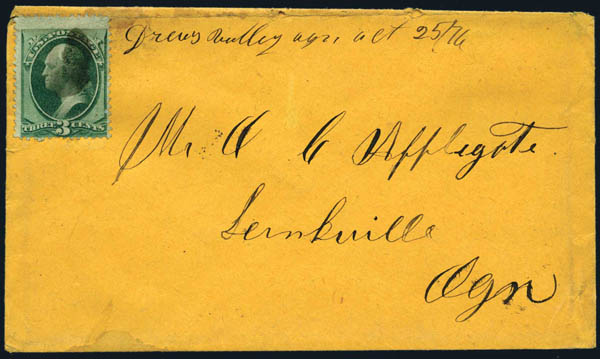 Drews valley ogn oct 25/76
U.S. POSTAGE
THREE 3 CENTS
Mr O C Applegate.
Lernkville
Ogn